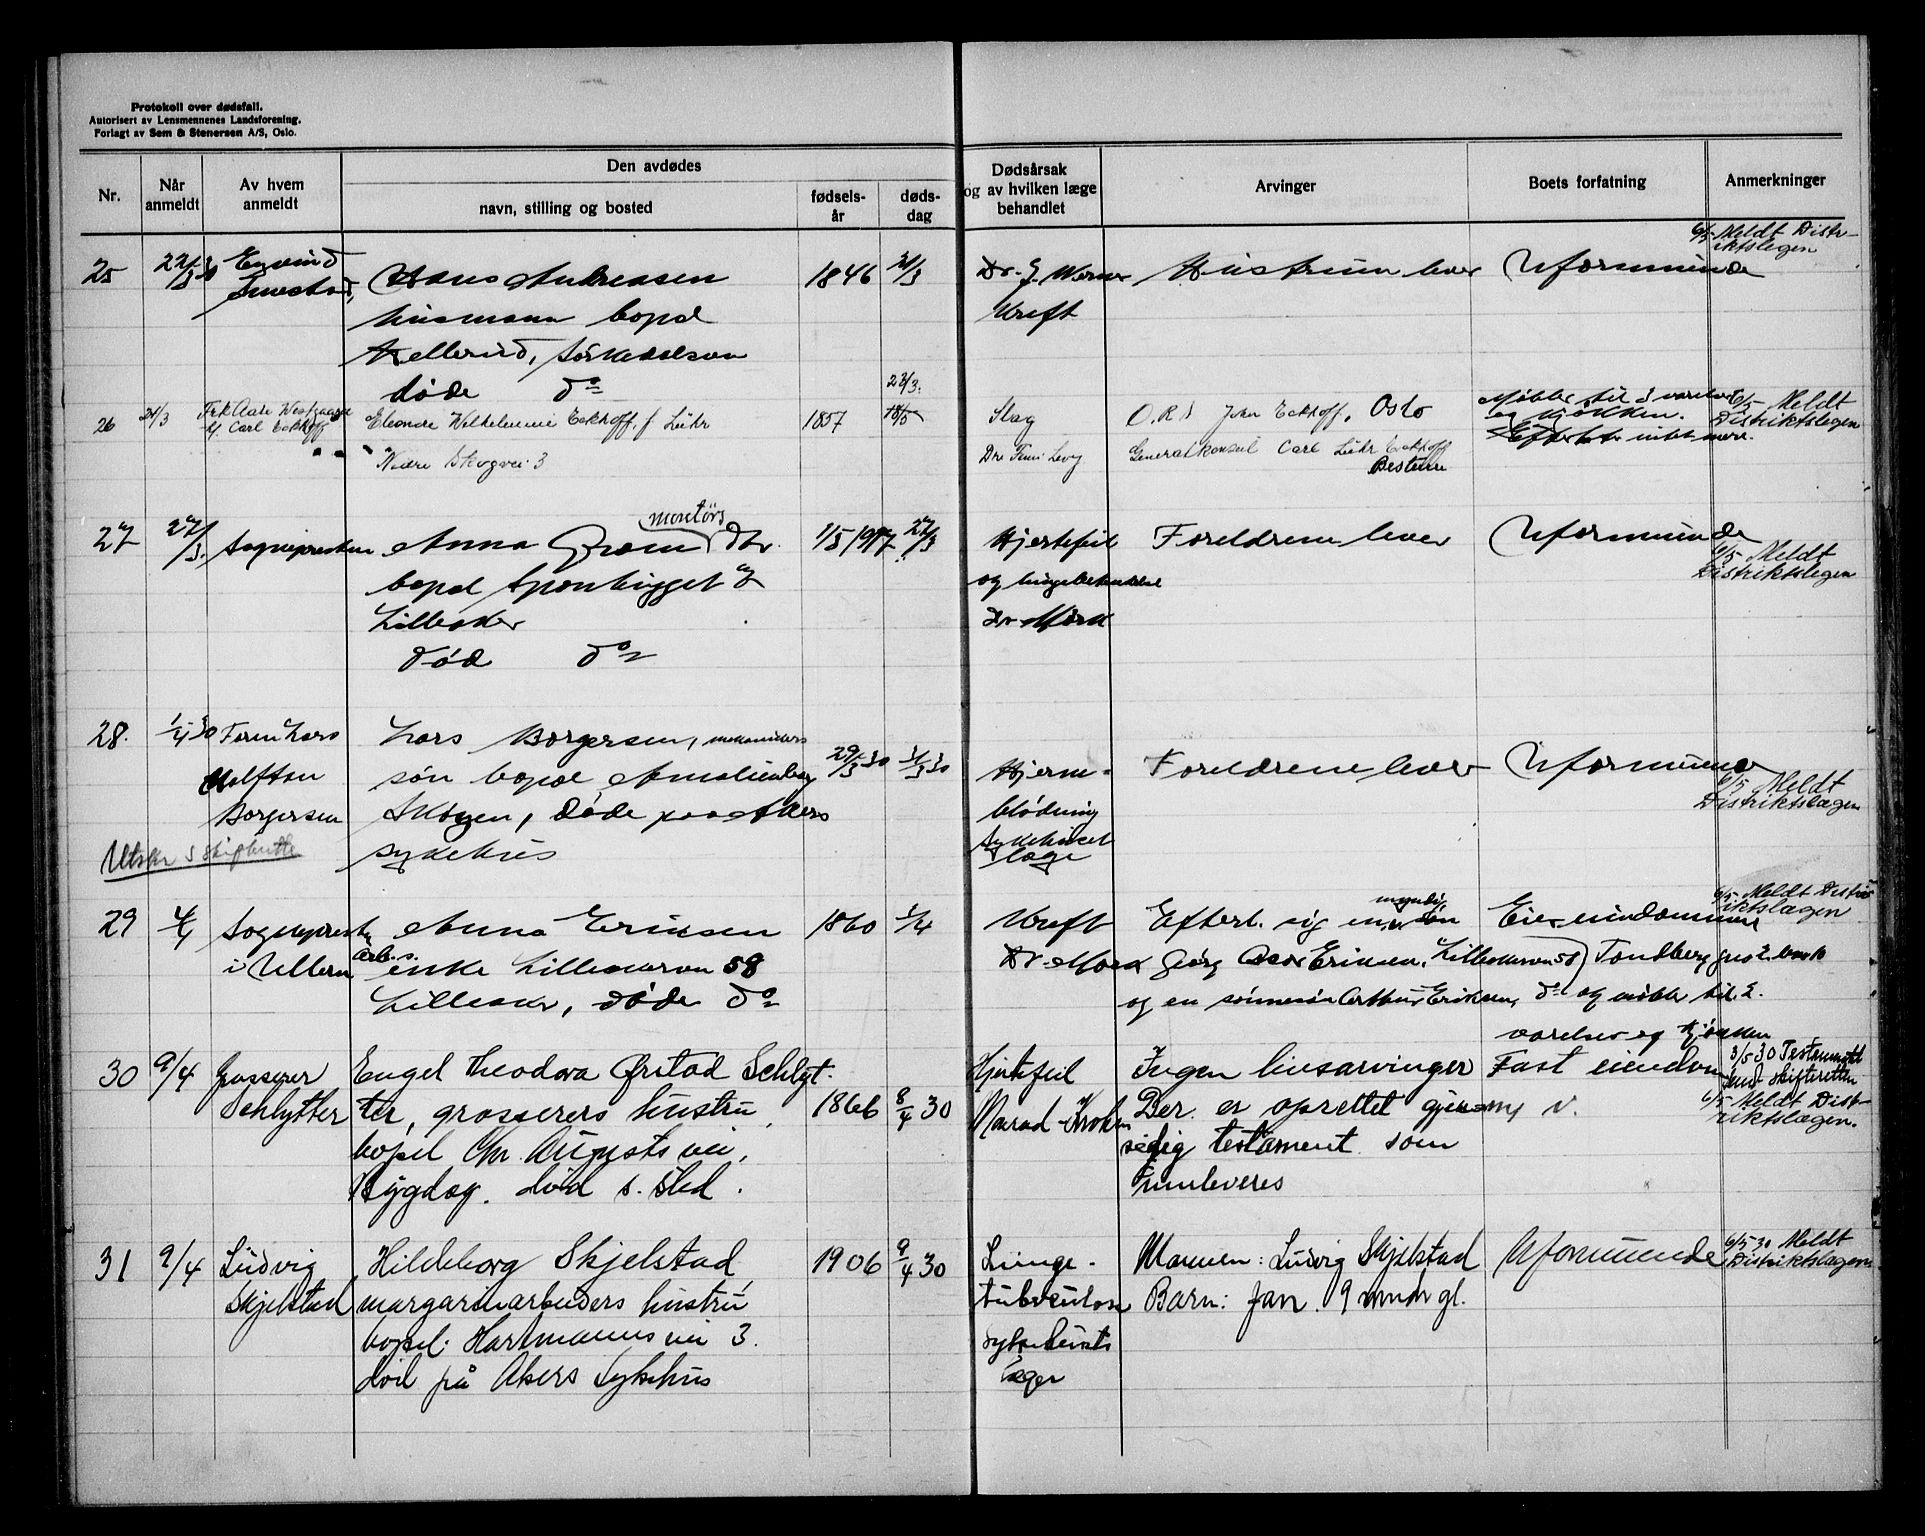 Protokoll over dødsfall.
Autorisert av Lensmennenes Landsforening.
Forlagt av Sem & Stenersen A/S, Oslo.
Nr.
Når anmeldt
Av hvem anmeldt
Den avdødes
navn, stilling og bosted
fødsels-år
døds-dag
Dødsårsak og av hvilken læge behandlet
Arvinger
Boets forfatning
Anmerkninger
25
22/3 30
Eyvind
Hans Andreassen
husmann bopæl
Sørkedalen
døde do
1846
21/3
Kreft
Hustruen lever
Uformuende
6/5 Meldt Distr-
iktslegen
26
21/3
Frk Aase Westgaard
Carl Eckhoff
Eleonore Wilhelmine Eckhoff, f. Lühr
Nedre Skogvei 3
1857
Slag
O.R.S John Eckhoff, Oslo
Generalkonsul Carl Lühr Eckhoff
Bestum
Møbler til 3 værelser
og kjøkken.
Efterlot intet mere.
6/5 Meldt
Distriktslegen
27
27/3.
Sognepresten
Anna Gram montørs dtr.
bopæl Sponhugget 7
Lilleaker
død do
1/5 1917
27/3
Hjertefeil
og lungebetendelse
Dr Mørk
Foreldrene lever
Uformuende
6/5 Meldt
Distriktslegen
28.
1/4 30
Faren Lars
Borgersen
Lars Borgersen, mekanikers
søn bopæl Amalienborg
Skøyen, døde paa Akers
sykehus
29/3 30
31/3 30
Hjerne-
blødning
Sykehuset
læge
Foreldrene lever
Uformuende
6/5 Meldt
Distriktslægen
29
4/4
Sognepresten
i Ullern
Anna Eriksen
arb.s. enke Lilleakervn 58
Lilleaker, døde do
1860
1/4
Kreft
Dr Mørk
Efterl. sig en myndig søn
Georg Oscar Eriksen, Lilleakervn 58
og en sønnesøn Arthur Eriksen, do
Eier eiendommen
Tandberg gno 2 bno 10
og møbler til 2
værelser og kjøkken
6/5 Meldt Distr-
iktslægen
30
9/4
Grosserer
Schlytter
Engel Theodora Ørstad Schlyt-
ter, grosserers hustru,
bopæl Chr. Augusts vei,
Bygdøy. død s. sted.
1866
8/4 30
Hjertefeil
Ingen livsarvinger
Der er oprettet gjen-
sidig testament som
innleveres
Fast eiendom
m. v.
3/5 30 Testamentet
sendt skifteretten
6/5 Meldt Distr-
iktslægen.
31
9/4
Ludvig
Skjelstad
Hildeborg Skjelstad,
margarinarbeiders hustru
bopæl: Hartmanns vei 3.
død på Akers Sykehus
1906
9/4 30
Lunge-
tuberkulose
Sykehusets
læger
Mannen: Ludvig Skjelstad
Barn: Jan. 9 mndr gl.
Uformuende
6/5 30 Meldt
Distriktslægen